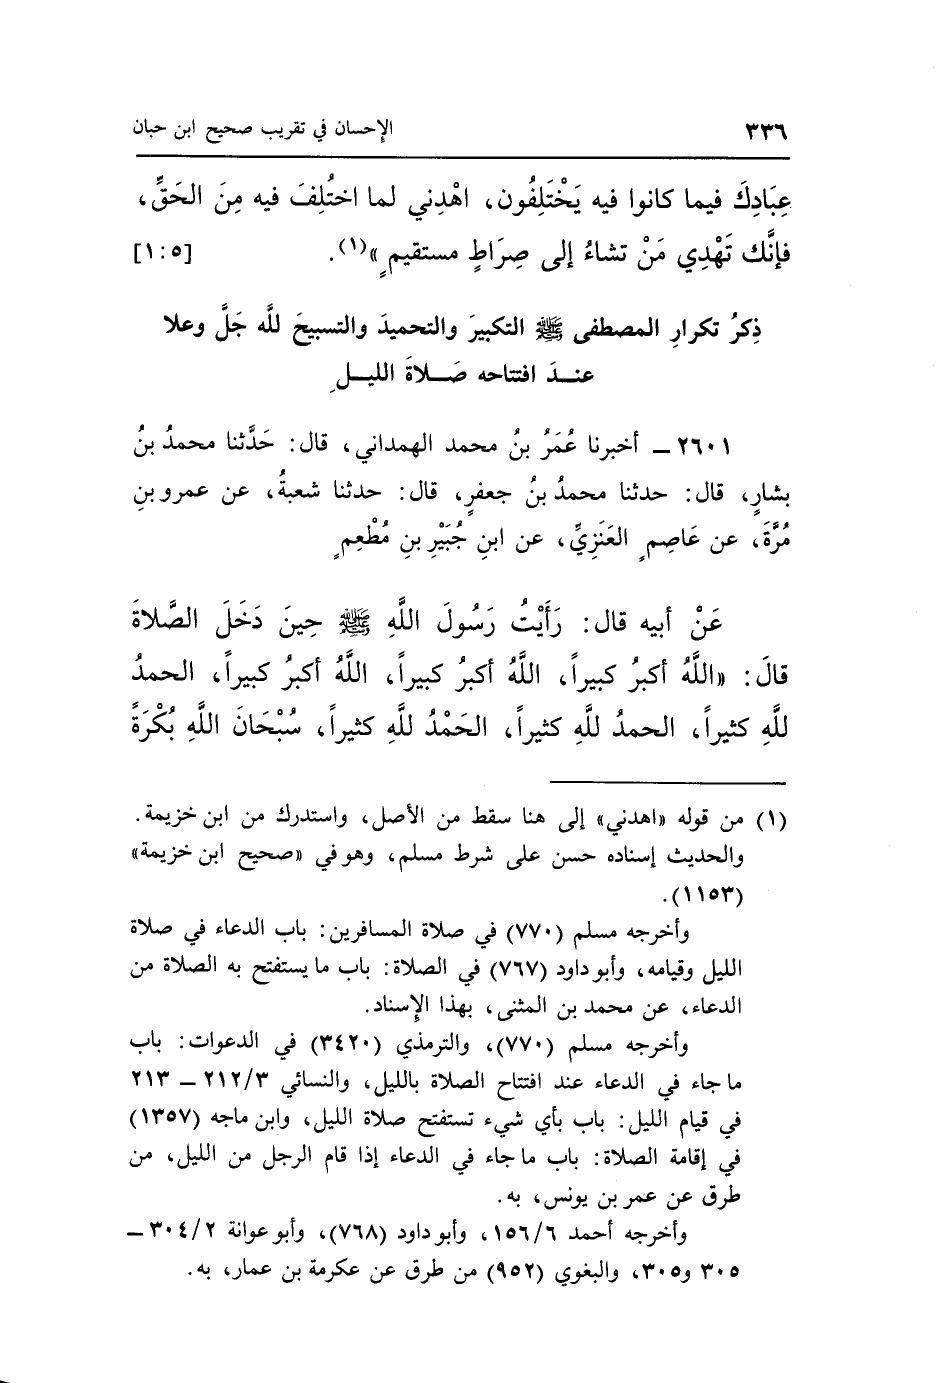 ٣٣٦ الإحسان في تقريب صحيح ابن حبان
عِبَادِكَ فيما كانوا فيه يَخْتَلِفُون، اهْدِني لما اختُلِفَ فيه مِنَ الحَقِّ،
فإنَّك تَهْدِي مَنْ تشاءُ إلى صِرَاطٍ مستقيمٍ»(١). [١:٥]
ذِكرُ تكرارِ المصطفى ﷺ التكبيرَ والتحميدَ والتسبيحَ للَّه جَلَّ وعلا
عنـدَ افتتاحه صَـلاةَ الليـلِ
٢٦٠١ ـ أخبرنا عُمَرُ بنُ محمد الهمداني، قال: حَدَّثنا محمدُ بنُ
بشارٍ، قال: حدثنا محمدُ بنُ جعفرٍ، قال: حدثنا شعبةُ، عن عمرو بنِ
مُرَّةَ، عن عَاصِمٍ العَنَزِيِّ، عن ابنِ جُبَيْرِ بنِ مُطْعِمٍ
عَنْ أبيه قال: رَأَيْتُ رَسُولَ اللَّهِ ﷺ حِينَ دَخَلَ الصَّلاةَ
قالَ: «اللَّهُ أكبرُ كبيراً، اللَّهُ أكبرُ كبيراً، اللَّهُ أكبرُ كبيراً، الحمدُ
للَّهِ كثيراً، الحمدُ للَّهِ كثيراً، الحَمْدُ للَّهِ كثيراً، سُبْحَانَ اللَّهِ بُكْرَةً
(١) من قوله «اهدني» إلى هنا سقط من الأصل، واستدرك من ابن خزيمة.
والحديث إسناده حسن على شرط مسلم، وهو في «صحيح ابن خزيمة»
(١١٥٣).
وأخرجه مسلم (٧٧٠) في صلاة المسافرين: باب الدعاء في صلاة
الليل وقيامه، وأبو داود (٧٦٧) في الصلاة: باب ما يستفتح به الصلاة من
الدعاء، عن محمد بن المثنى، بهذا الإسناد.
وأخرجه مسلم (٧٧٠)، والترمذي (٣٤٢٠) في الدعوات: باب
ما جاء في الدعاء عند افتتاح الصلاة بالليل، والنسائي ٢١٢/٣ ـ ٢١٣
في قيام الليل: باب بأي شيء تستفتح صلاة الليل، وابن ماجه (١٣٥٧)
في إقامة الصلاة: باب ما جاء في الدعاء إذا قام الرجل من الليل، من
طرق عن عمر بن يونس، به.
وأخرجه أحمد ١٥٦/٦، وأبو داود (٧٦٨)، وأبو عوانة ٣٠٤/٢ ـ
٣٠٥ و٣٠٥، والبغوي (٩٥٢) من طرق عن عكرمة بن عمار، به.